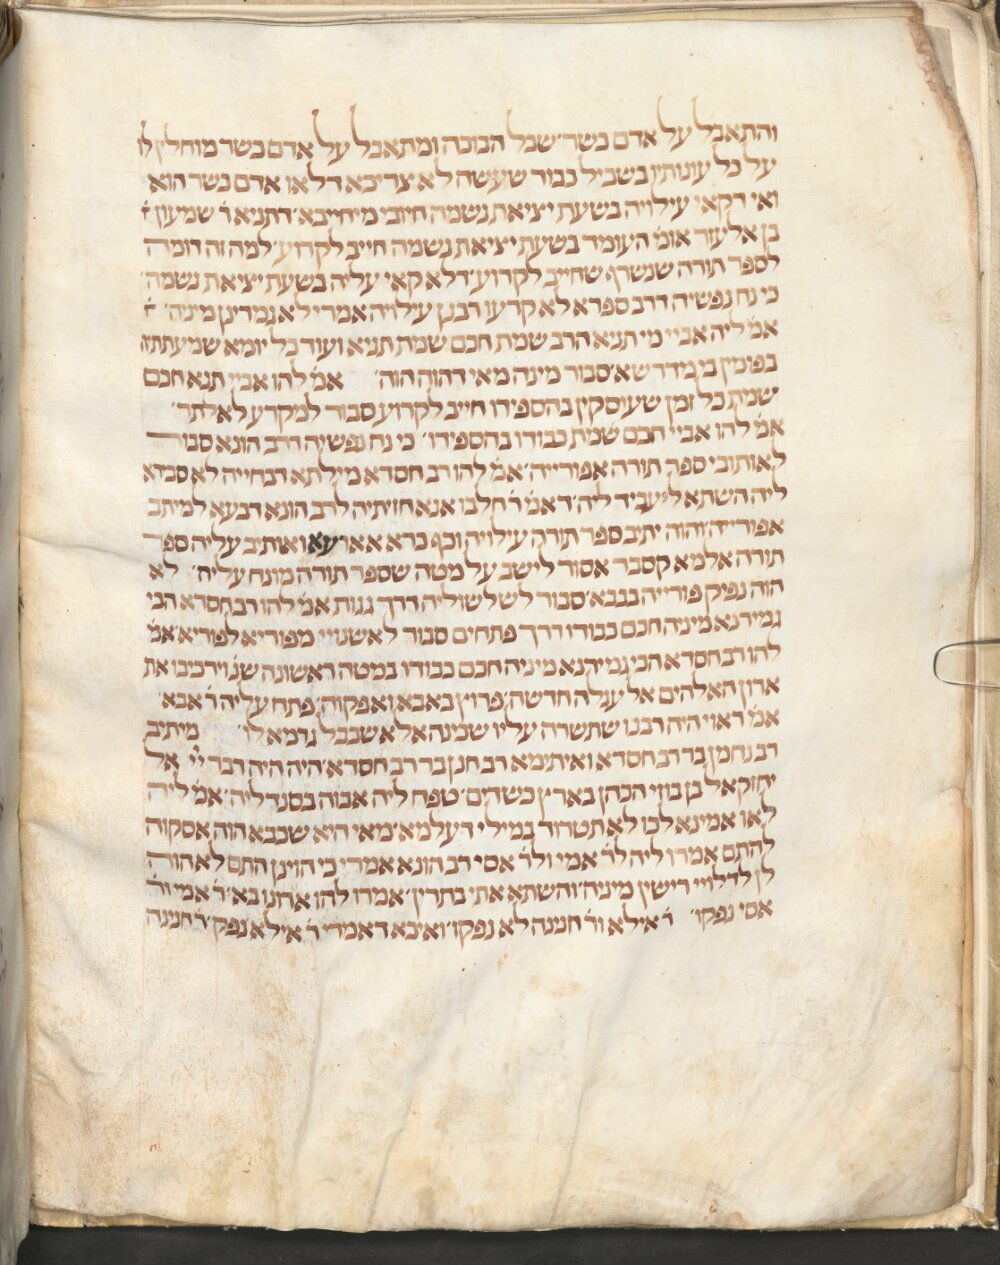 והתאבל על אדם כשר שכל הבוכה ומתאבל על אדם כשר מוחלין לו
על כל עונותיו בשביל כבוד שעשה לא צריכא דלאו אדם כשר הוא
ואי דקאי עילויה בשעת יציאת נשמה חיובי מיחייבא דתניא ר' שמעון
בן אלעזר אומ' העומד בשעת יציאת נשמה חייב לקרוע למה זה דומה
לספר תורה שנשרף שחייב לקרוע דלא קאי עליה בשעת יציאת נשמה
כי נח נפשיה דרב ספרא לא קרעו רבנן עילויה אמרי לא גמרינן מיניה
אמ' ליה אביי מי תניא הרב שמת חכם שמת תניא ועוד כל יומא שמעתתיה
בפומין בי מדרשא סבור מינה מאי דהוה הוה אמ' להו אביי תנא חכם
שמת כל זמן שעוסקין בהספידו חייב לקרוע סבור למקרע לאלתר
אמ' להו אביי חכם שמת כבודו בהספידו כי נח נפשיה דרב הונא סבור
לאותובי ספר תורה אפורייה אמ' להו רב חסדא מילתא דבחייה לא סבירא
ליה השתא ליעביד ליה דאמ' ר' חלבו אנא חזיתיה לרב הונא דבעא למיתב
אפורייה והוה יתיב ספר תורה עילויה וכף כדא אארעא ואותיב עליה ספר
תורה אלמא קסבר אסור לישב על מטה שספר תורה מונח עליה לא
הוה נפיק פורייה בבבא סבור לשלשוליה דרך גגות אמ' להו רב חסדא הכי
גמירנא מיניה חכם כבודו דרך פתחים סבור לאשנויי מפוריא לפוריא אמ'
להו רב חסדא הכי גמירנא מיניה חכם כבודו במטה ראשונה שנ' וירכיבו את
ארון האלהים אל עגלה חדשה פרוץ באבא ואפקוה פתח עליה ר' אבא
אמ' ראוי היה רבנו שתשרה עליו שכינה אלא שבבל גרמא לו מיתיב
רב נחמן בר רב חסדא ואיתימא רב חנן בר רב חסדא היה היה דבר יי' אל
יחזקאל בן בוזי הכהן בארץ כשדים טפח ליה אבוה בסנדליה אמ' ליה
לאו אמינא לכו לא תטרוד במילי דעלמא מאי היא שכבא הוה אסקוה
להתם אמרו ליה לר' אמי ולר' אסי רב הונא אמרי כי הוינן התם לא הוה
לן לדלויי רישין מיניה והשתא אתי בתרין אמרו להו ארונו בא ר' אמי ור'
אסי נפקו ר' אילא ור' חנינה לא נפקו ואיכא דאמרי ר' אילא נפק ר' חנינה